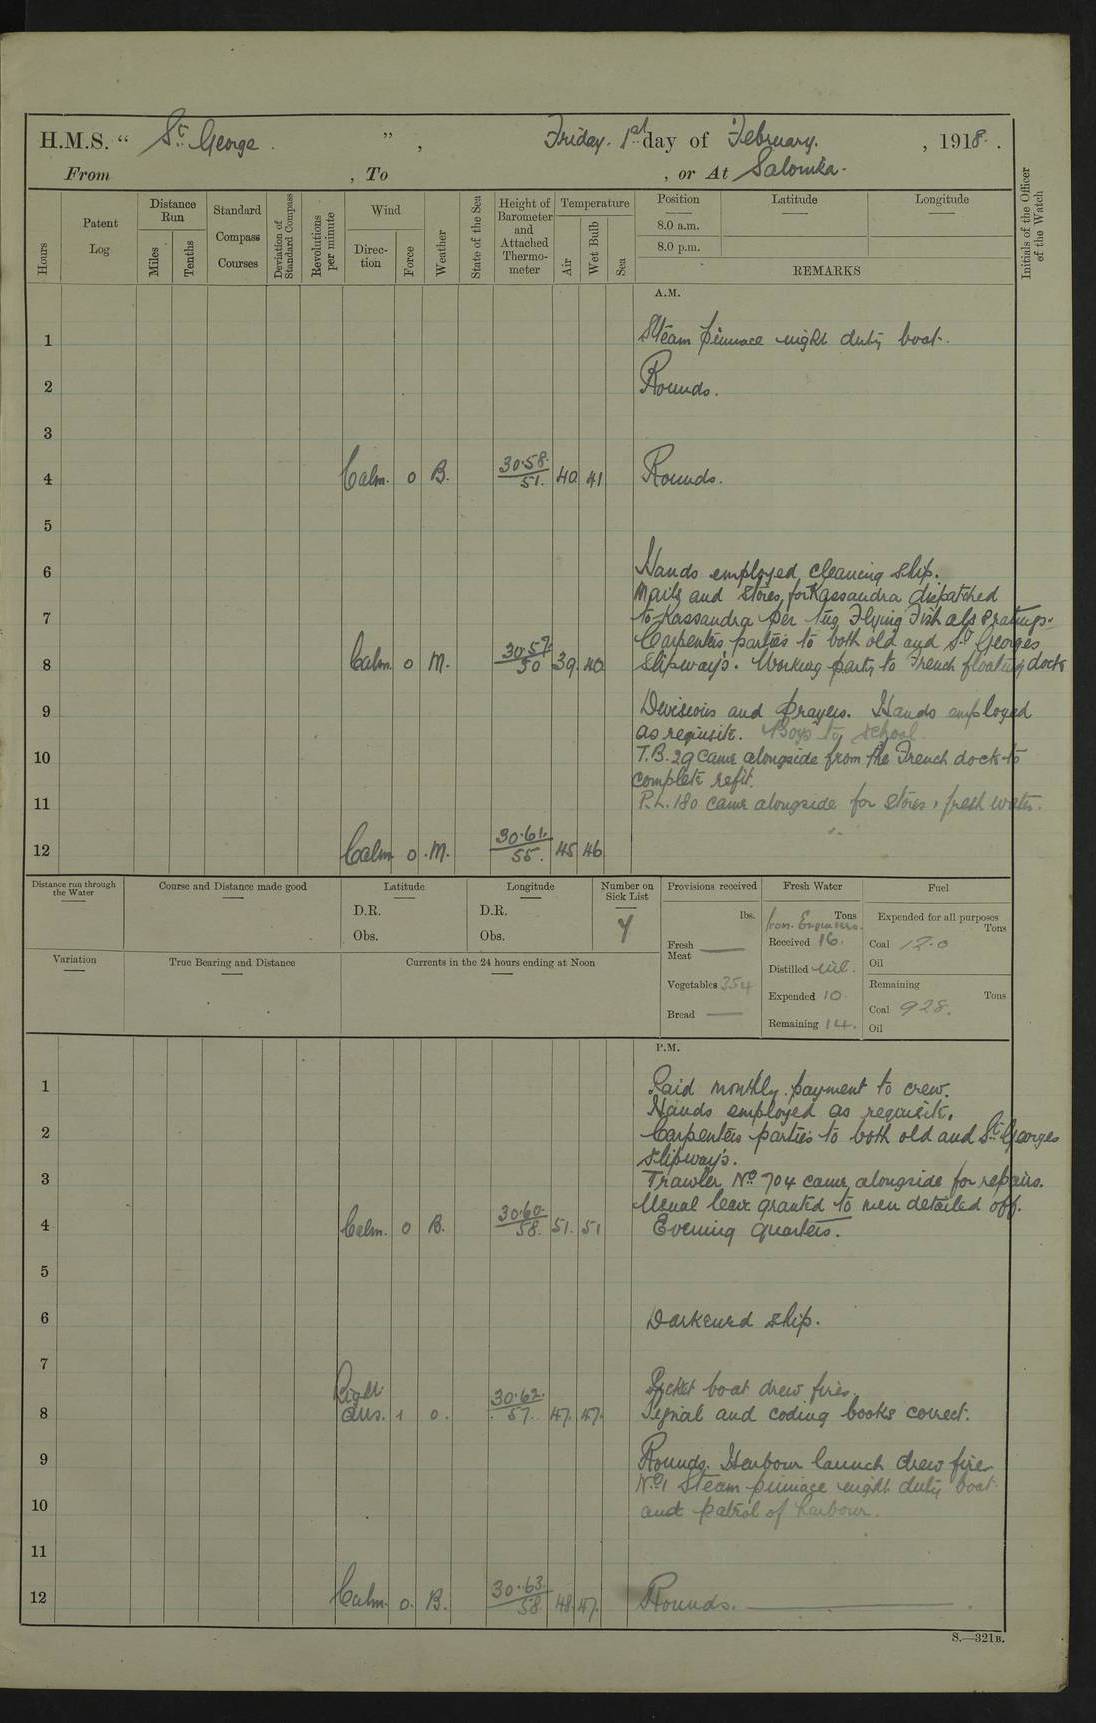 H.M.S. “ St George. ”, Friday. 1st day of February. , 1918.
From , To , or At Salonika.
Hours
Patent Log
Distance Run
Miles
Tenths
Standard Compass Courses
Deviation of Standard Compass
Revolutions per minute
Wind
Direction
Force
Weather
State of the Sea
Height of Barometer and Attached Thermometer
Temperature
Air
Wet Bulb
Sea
Position
Latitude
Longitude
8.0 a.m.
8.0 p.m.
REMARKS
Initials of the Officer of the Watch
A.M.
1 Steam pinnace night duty boat.
2 Rounds.
3
4 Calm. 0 B. 30.58. 51. 40 41 Rounds.
5
6 Hands employed cleaning ship.
Mails and Stores, for Kassandra dispatched
7 to Kassandra per tug Flying Fish also ratings.
Carpenters parties to both old and St Georges
8 Calm. 0 M. 30.59 50 39. 40. Slipway's. Working party to French floating dock
9 Divisions and prayers. Hands employed
as requisite. Boys to school.
10 T.B. 29 came alongside from the French dock to
complete refit.
11 P.L. 180 came alongside for stores & fresh water.
12 Calm 0 M. 30.61. 55. 45 46
Distance run through the Water
Course and Distance made good
Latitude
D.R.
Obs.
Longitude
D.R.
Obs.
Number on Sick List
4
Provisions received
lbs.
Fresh Meat —
Vegetables 354
Bread —
Fresh Water
Tons
from Engineers.
Received 16.
Distilled nil.
Expended 10.
Remaining 14.
Fuel
Expended for all purposes
Tons
Coal 12.0
Oil
Remaining
Tons
Coal 928.
Oil
Variation
True Bearing and Distance
Currents in the 24 hours ending at Noon
P.M.
1 Paid monthly payment to crew.
Hands employed as requisite.
2 Carpenters parties to both old and St Georges
slipway's.
3 Trawler No 704 came alongside for repairs.
Usual leave granted to men detailed off.
4 Calm. 0 B. 30.60. 58. 51. 51 Evening quarters.
5
6 Darkened ship.
7
Picket boat drew fires.
8 Light airs. 1 0. 30.62. 57. 47. 47. Signal and coding books correct.
9 Rounds. Harbour launch drew fire
No 1 Steam pinnace night duty boat
10 and patrol of harbour.
11
12 Calm. 0. B. 30.63. 58 48 47. Rounds.
S.—321B.